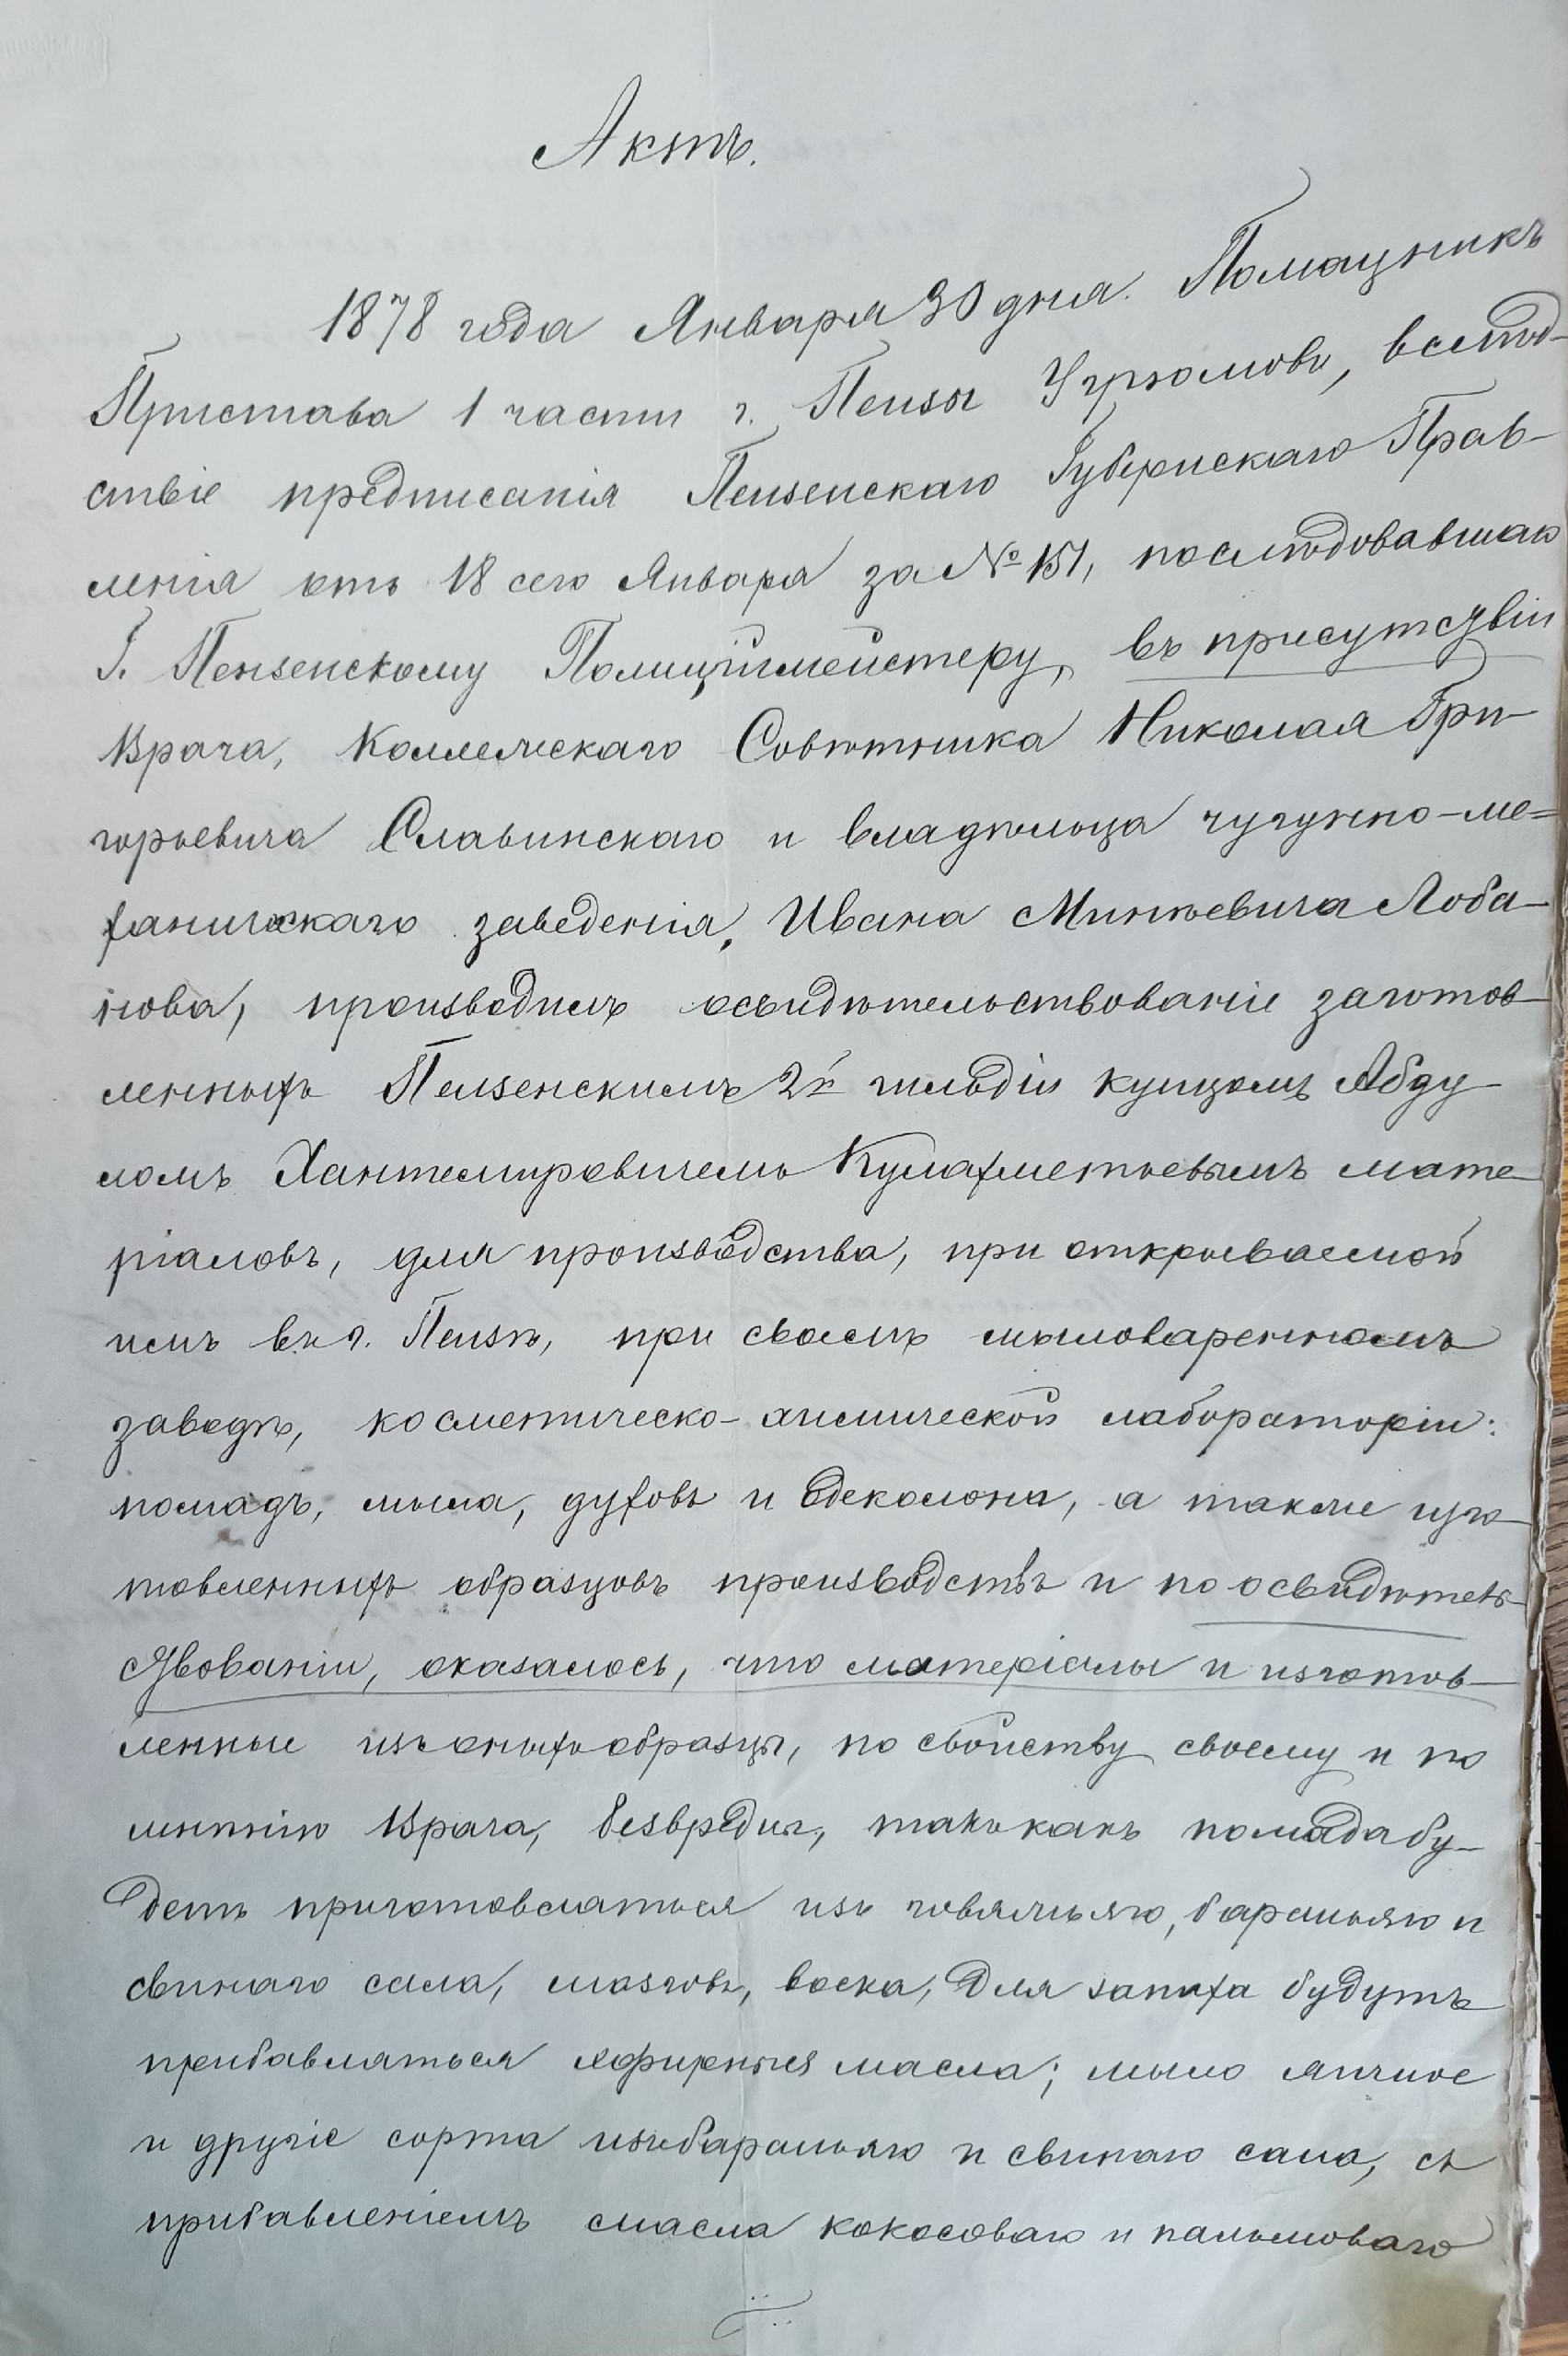 Актъ.
1878 года Января 30 дня. Помощникъ
Пристава 1 части г. Пензы Угрюмовъ, вслѣд-
ствіе предписанія Пензенскаго Губернскаго Прав-
ленія отъ 18 сего Января за № 151, послѣдовавшаго
Г. Пензенскому Полиціймейстеру, въ присутствіи
Врача, Коллежскаго Совѣтника Николая Гри-
горьевича Славинскаго и владѣльца чугунно-ме=
ханическаго заведенія, Ивана Минѣевича Лоба-
нова, производилъ освидѣтельствованіе заготов-
ленныхъ Пензенскимъ 2й гильдіи купцомъ Абду
ломъ Хантемировичемъ Кулахметьевымъ мате-
ріаловъ, для производства, при открываемой
имъ въ г. Пензѣ, при своемъ мыловаренномъ
заводѣ, косметическо-химической лабораторіи:
помадъ, мыла, духовъ и одеколона, а также изго-
товленныхъ образцовъ производствъ и по освидѣтель-
ствованіи, оказалось, что матеріалы и изготов-
ленные изъ оныхъ образцы, по свойству своему и по
мнѣнію Врача, безвредны, такъ какъ помада бу-
детъ приготовляться изъ говяжьяго, бараньяго и
свинаго сала, мозговъ, воска, для запаха будутъ
прибавляться эфирныя масла; мыло яичное
и другіе сорта изъ бараньяго и свинаго сала, съ
прибавленіемъ масла кокосоваго и пальмоваго